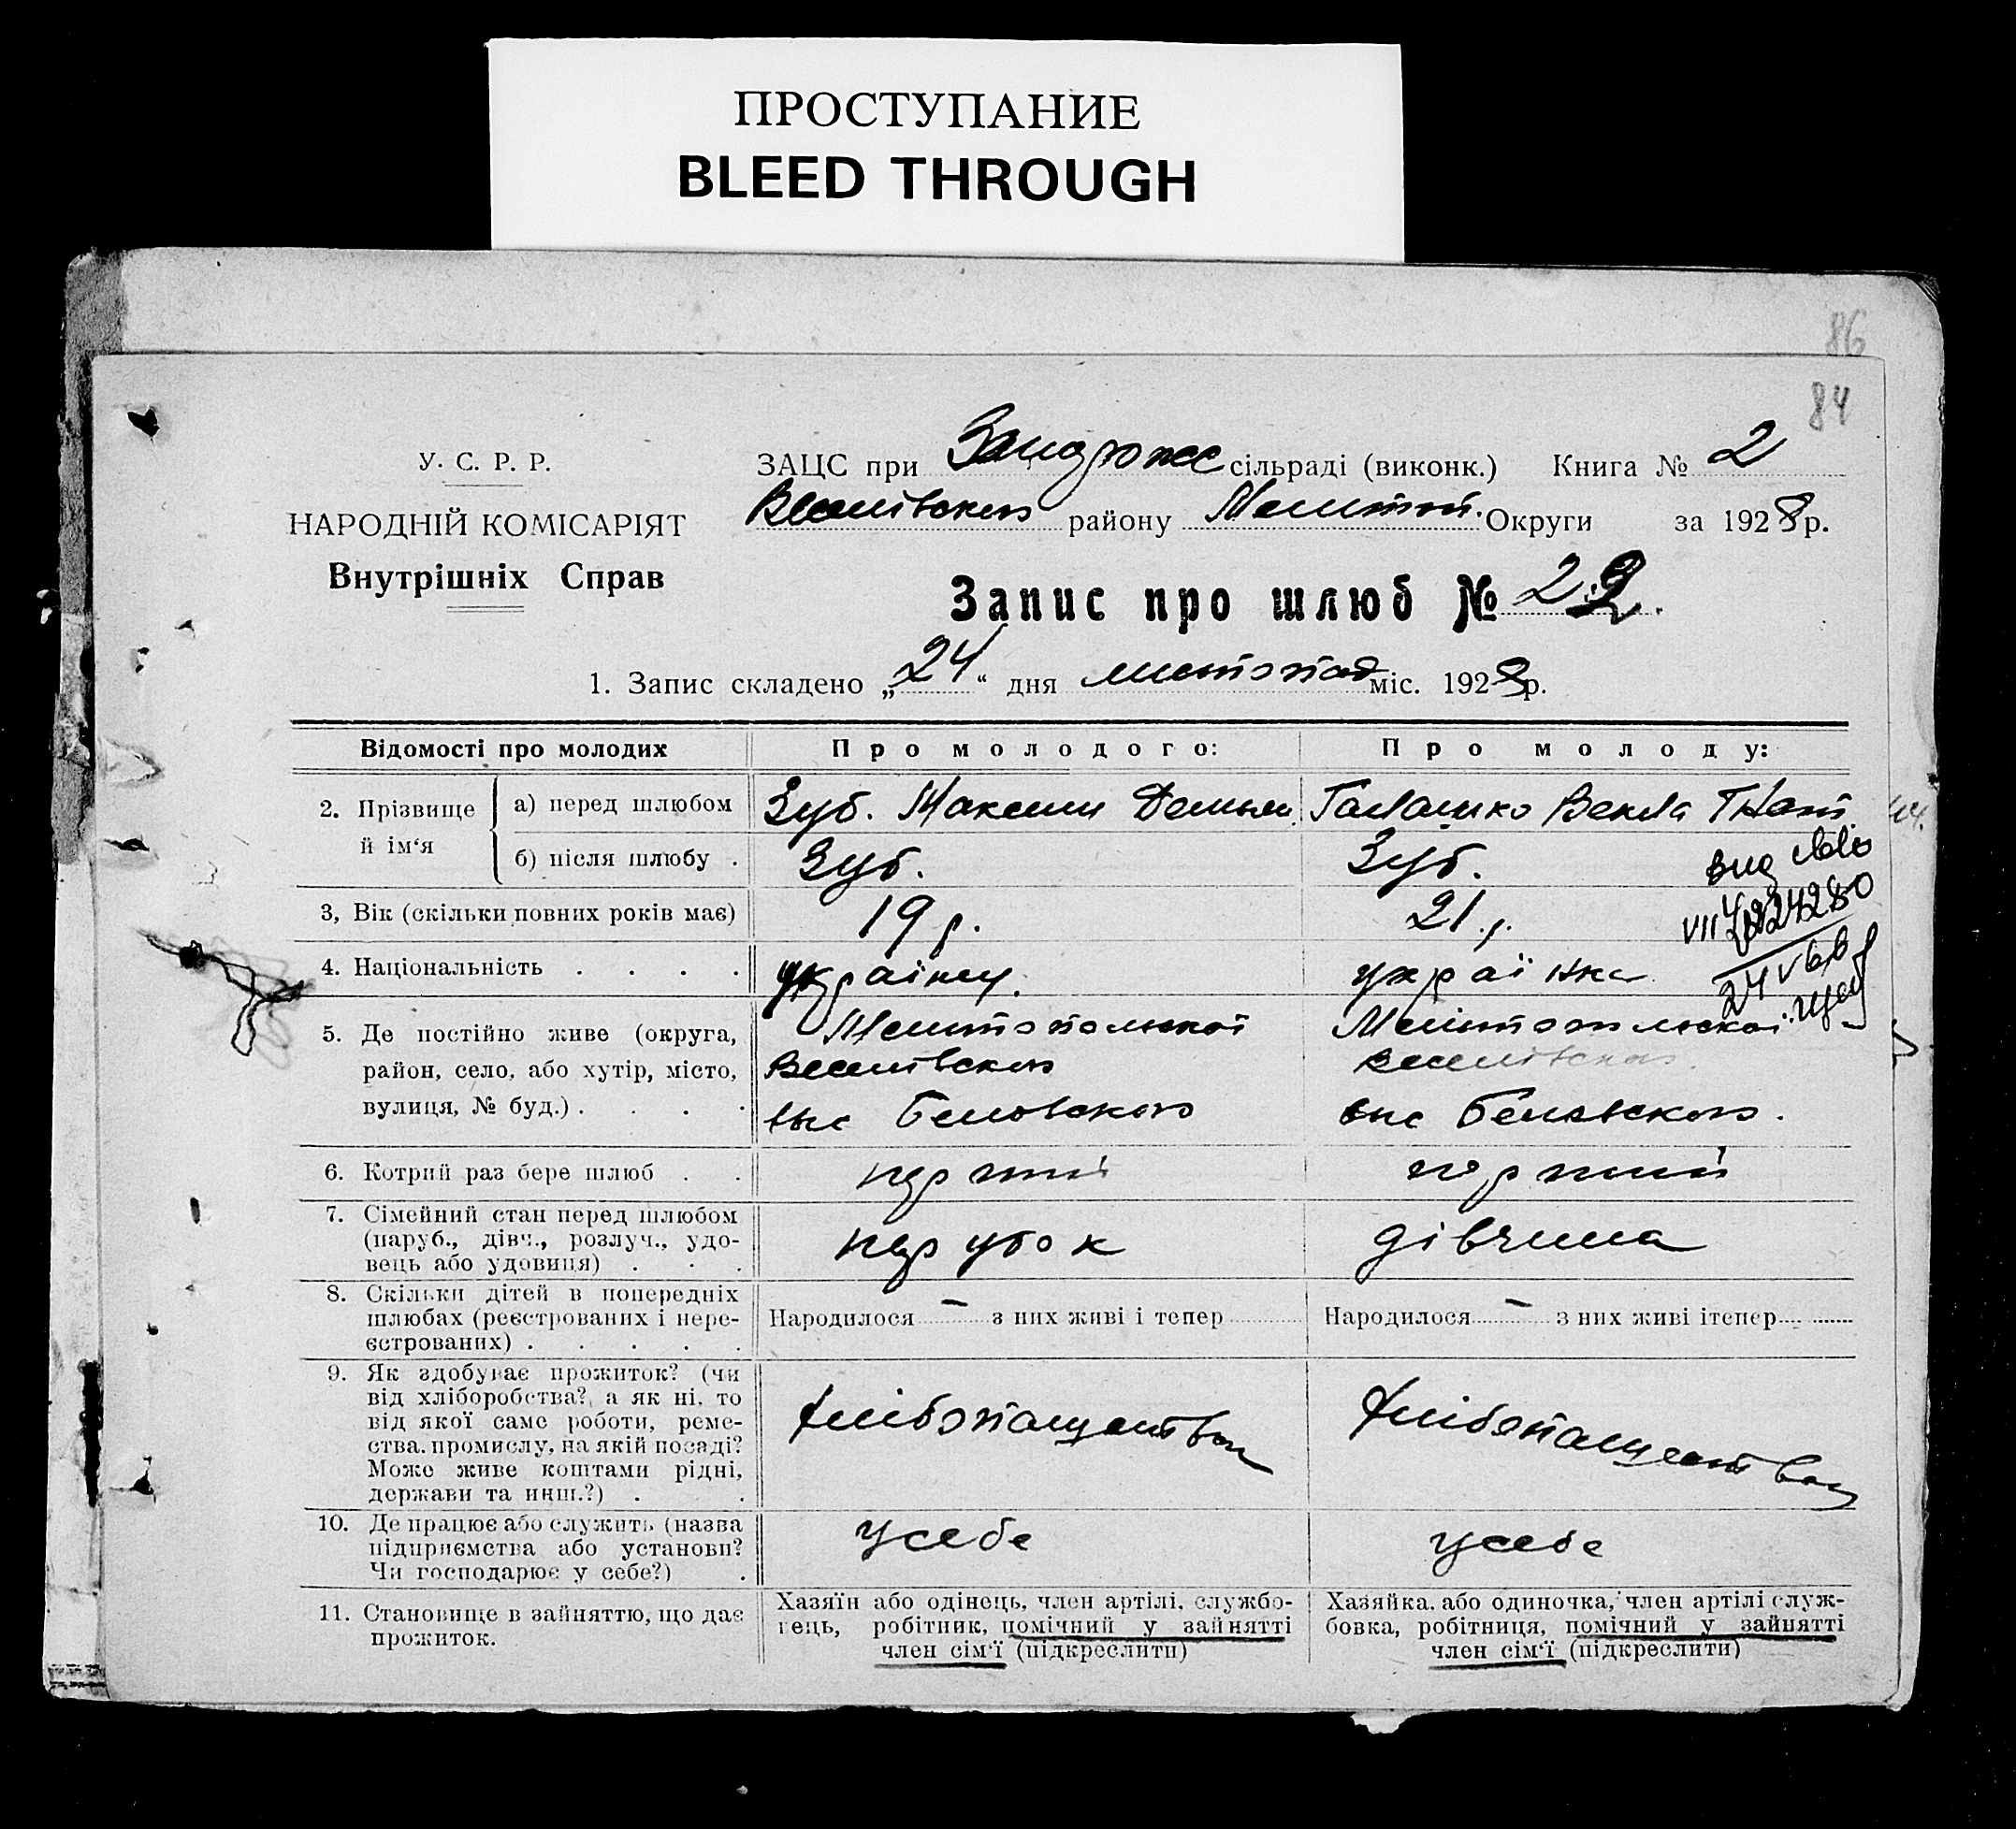 ПРОСТУПАНИЕ
BLEED THROUGH
86
84
У. С. Р. Р.
НАРОДНІЙ КОМІСАРІЯТ
Внутрішніх Справ
ЗАЦС при сільраді (виконк.) Книга № 2
Веселівского району Мелитоп. Округи за 1928 р.
Запис про шлюб № 22.
1. Запис складено „24“ дня листопад міс. 1928 р.
Відомості про молодих Про молодого: Про молоду:
2. Прізвище й ім‘я
а) перед шлюбом Зуб. Максим Демьян. Галашко Векла Гнат.
б) після шлюбу . Зуб. Зуб.
3, Вік (скільки повних років має) 19 р. 21. р.
4. Національність . . . . українец. українка
5. Де постійно живе (округа, район, село, або хутір, місто, вулиця, № буд.) . . . .
Мелитопольскої
Веселівского
выс Беловского
Мелітопольскої
Веселівского
выс Беловского.
6. Котрий раз бере шлюб . . перший перший
7. Сімейний стан перед шлюбом
(паруб., дівч., розлуч., удо-
вець або удовиця) . . .
парубок дівчина
8. Скільки дітей в попередніх
шлюбах (реєстрованих і нере-
єстрованих) . . . . .
Народилося – з них живі і тепер
Народилося – з них живі ітепер
9. Як здобуває прожиток? (чи
від хліборобства? а як ні, то
від якої саме роботи, реме-
ства, промислу, на якій посаді?
Може живе коштами рідні,
держави та инш.?) . .
хлібопаществом хлібопаществом
10. Де працює або служить (назва
підприємства або установи?
Чи господарює у себе?) .
усебе усебе
11. Становище в зайняттю, що дає
прожиток.
Хазяїн або одінець, член артілі, службо-
вець, робітник, помічний у зайнятті
член сім‘ї (підкреслити)
Хазяйка, або одиночка, член артілі служ-
бовка, робітниця, помічний у зайнятті
член сім‘ї (підкреслити)